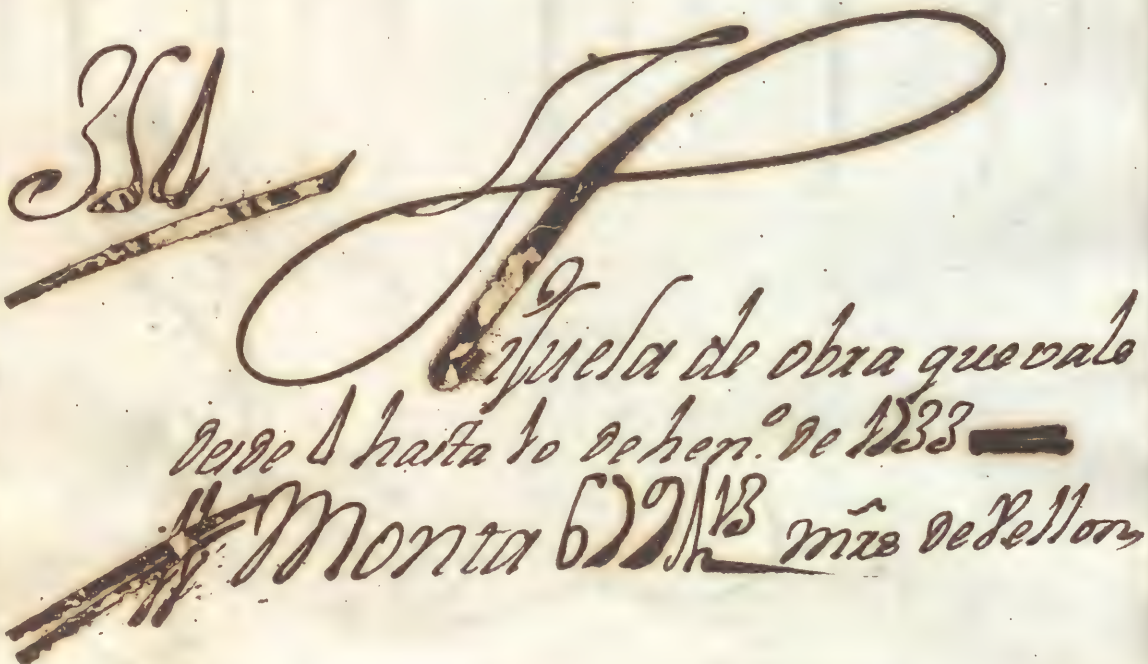 354
Hijuela de obra que vale
desde 4 hasta 10 de hen.º de 1733
Monta 679 13 mrs de Vellon